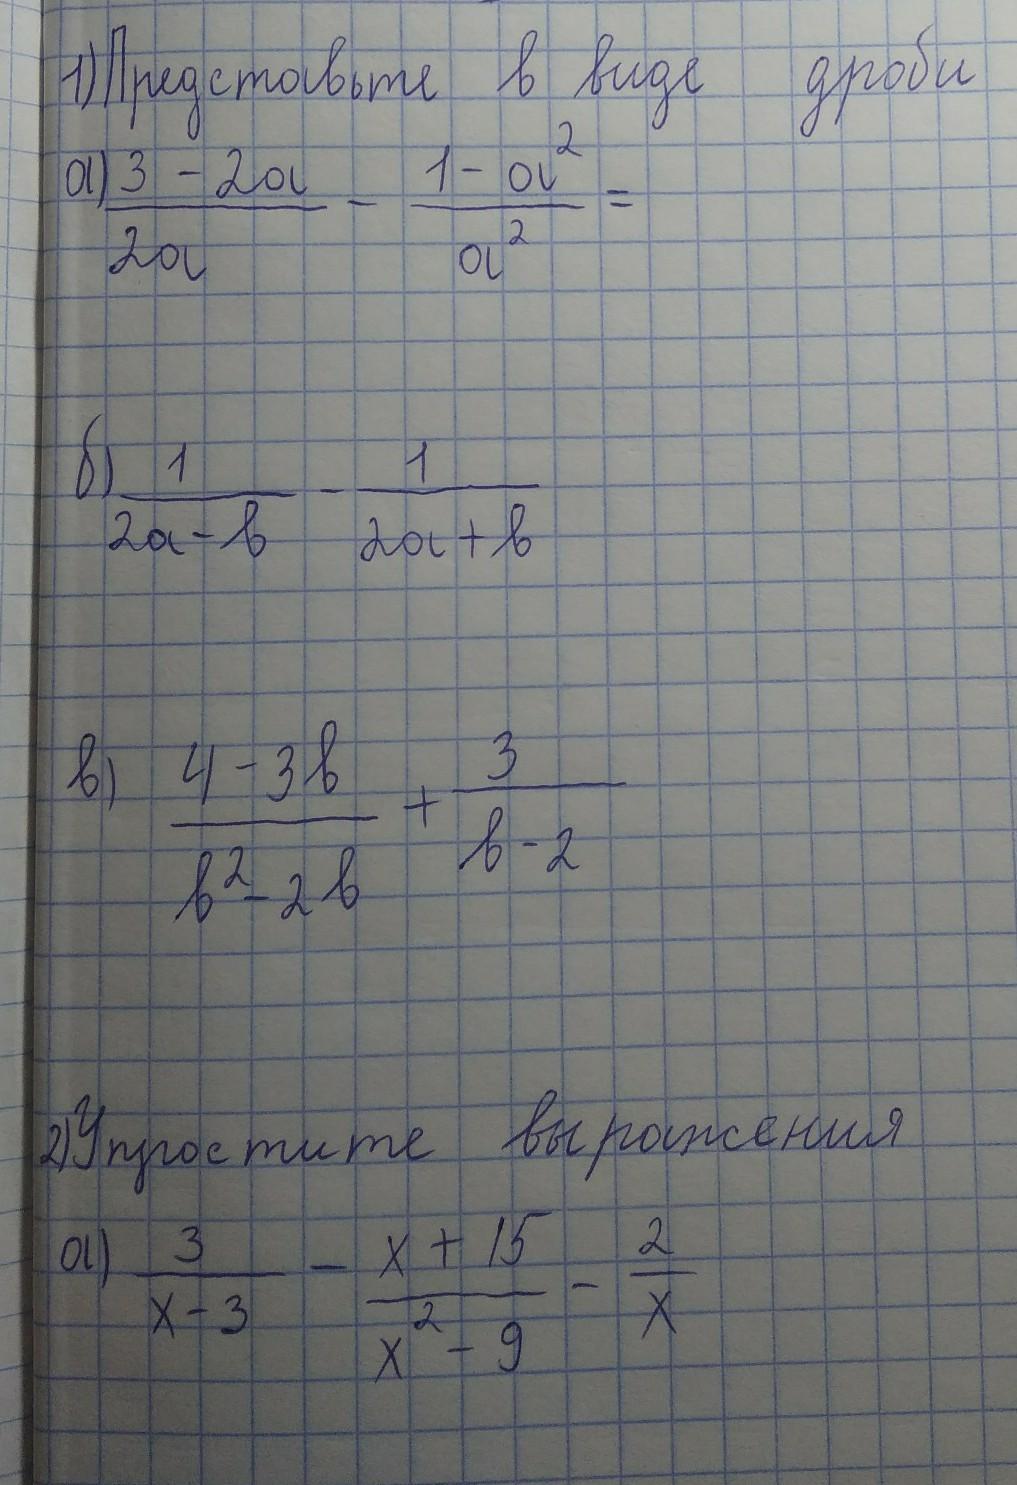 1) Представьте в виде дроби
а) (3 - 2a)/(2a) - (1 - a²)/(a²) =
б) 1/(2a - b) - 1/(2a + b)
в) (4 - 3b)/(b² - 2b) + 3/(b - 2)
2) Упростите выражения
а) 3/(x - 3) - (x + 15)/(x² - 9) - 2/x